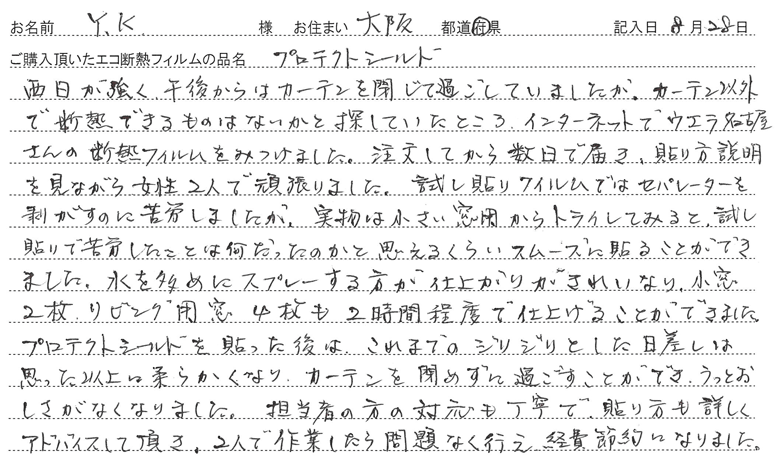 お名前 Y.K. 様 お住まい 大阪 都道府県 記入日 8月28日
ご購入頂いたエコ断熱フィルムの品名 プロテクトシールド
西日が強く、午後からはカーテンを閉じて過ごしていましたが、カーテン以外
で断熱できるものはないかと探していたところ、インターネットでウエラ名古屋
さんの断熱フィルムをみつけました。注文してから数日で届き、貼り方説明
を見ながら女性2人で頑張りました。試し貼りフイルムではセパレーターを
剥がすのに苦労しましたが、実物は小さい窓用からトライしてみると、試し
貼りで苦労したことは何だったのかと思えるくらいスムーズに貼ることができ
ました。水を多めにスプレーする方が仕上がりがきれいなり、小窓
2枚、リビング用窓4枚も2時間程度で仕上げることができました
プロテクトシールドを貼った後は、これまでのジリジリとした日差しは
思った以上に柔らかくなり、カーテンを閉めずに過ごすことができ、うっとお
しさがなくなりました。担当者の方の対応も丁寧で、貼り方も詳しく
アドバイスして頂き、2人で作業したら問題なく行え、経費節約になりました。